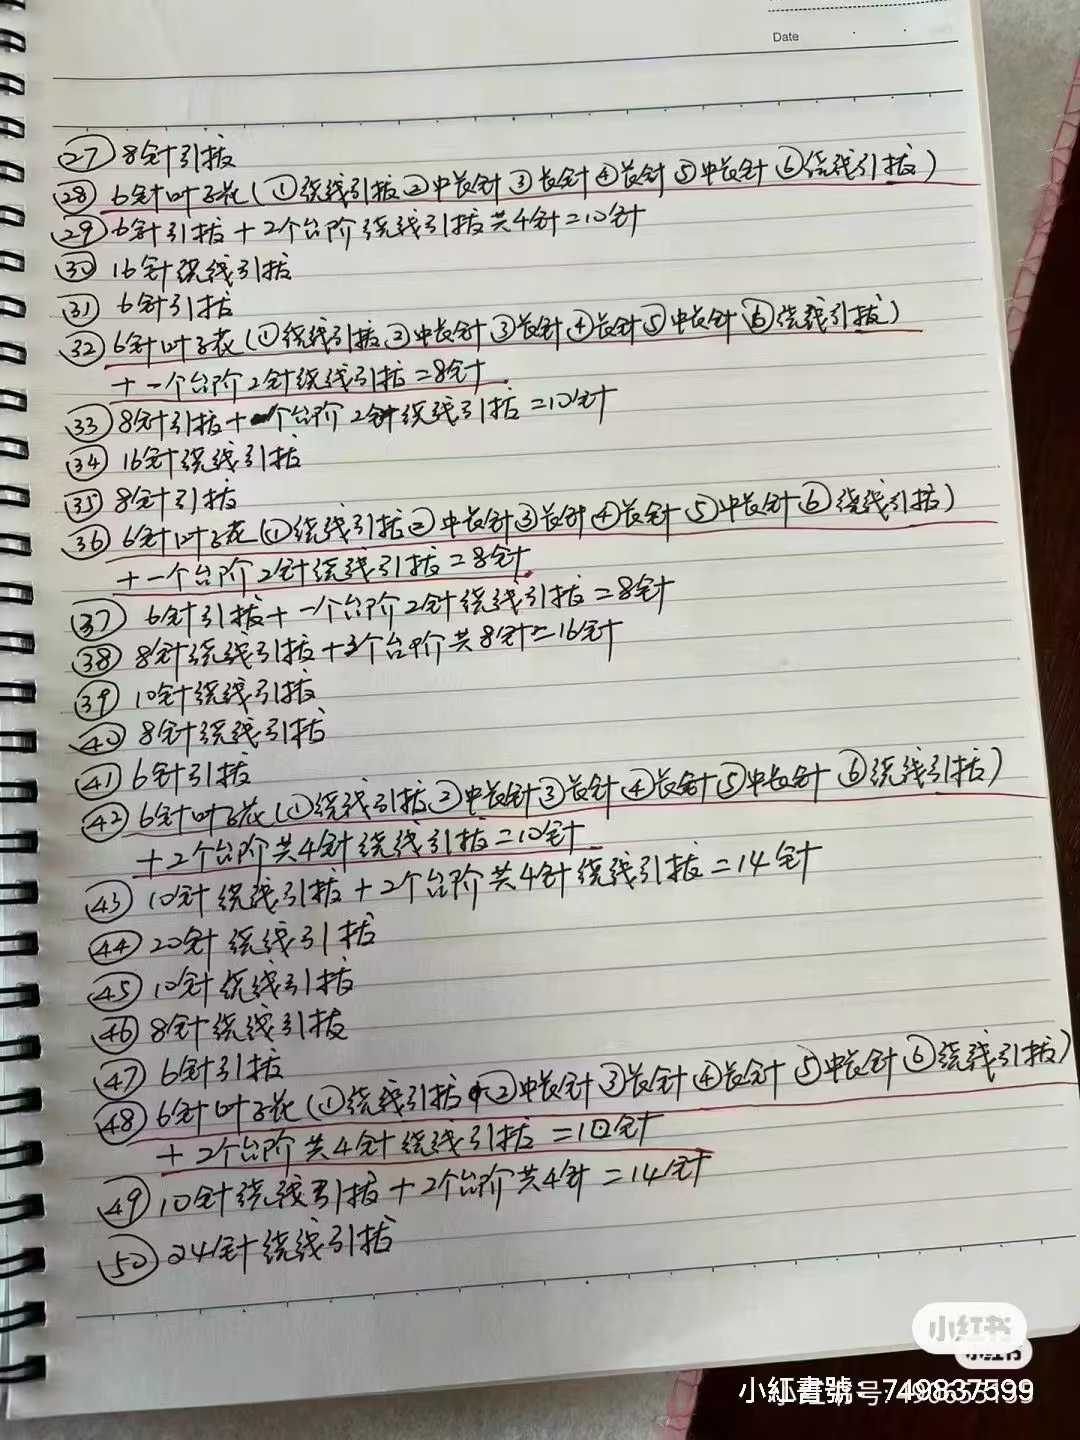 Date
㉗ 8针引拔
㉘ 6针叶子花(①绕线引拔②中长针③长针④长针⑤中长针⑥绕线引拔)
㉙ 6针引拔+2个台阶绕线引拔共4针=10针
㉚ 16针绕线引拔
㉛ 6针引拔
㉜ 6针叶子花(①绕线引拔②中长针③长针④长针⑤中长针⑥绕线引拔)
+一个台阶2针绕线引拔=8针
㉝ 8针引拔+一个台阶2针绕线引拔=10针
㉞ 16针绕线引拔
㉟ 8针引拔
㊱ 6针叶子花(①绕线引拔②中长针③长针④长针⑤中长针⑥绕线引拔)
+一个台阶2针绕线引拔=8针
㊲ 6针引拔+一个台阶2针绕线引拔=8针
㊳ 8针绕线引拔+3个台阶共8针=16针
㊴ 10针绕线引拔
㊵ 8针绕线引拔
㊶ 6针引拔
㊷ 6针叶子花(①绕线引拔②中长针③长针④长针⑤中长针⑥绕线引拔)
+2个台阶共4针绕线引拔=10针
㊸ 10针绕线引拔+2个台阶共4针绕线引拔=14针
㊹ 20针绕线引拔
㊺ 10针绕线引拔
㊻ 8针绕线引拔
㊼ 6针引拔
㊽ 6针叶子花(①绕线引拔②中长针③长针④长针⑤中长针⑥绕线引拔)
+2个台阶共4针绕线引拔=10针
㊾ 10针绕线引拔+2个台阶共4针=14针
㊿ 24针绕线引拔
小红书
小红书